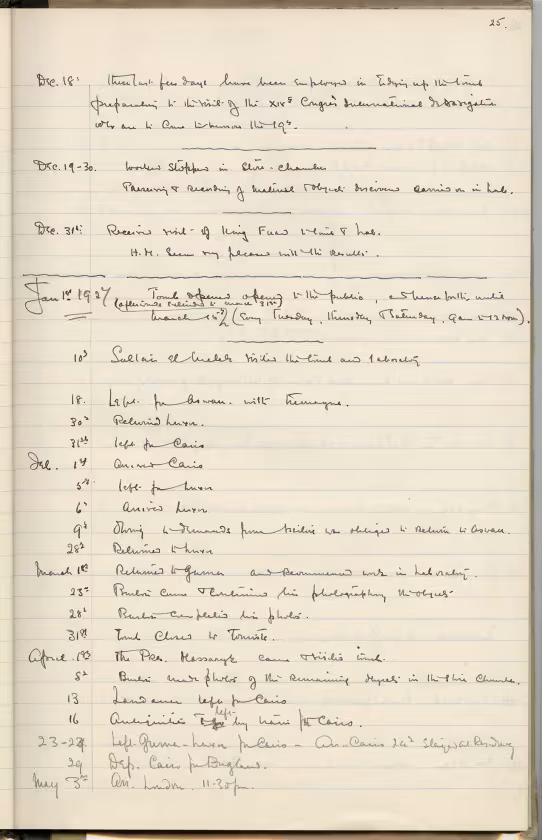 25.
Dec. 18th These last few days have been employed in tidying up the tomb
preparatory to the visit of the XIVth Congres International de Navigation
who are to come to Luxor the 19th.
Dec. 19-30. Worked stopped in Store-chamber
Preserving & recording of material & objects discovered carried on in Lab.
Dec. 31st. Received visit of King Fuad to tomb & Lab.
H.M. seem very pleased with the results.
Jan 1st 1927 Tomb opened to the public, and henceforth until
(afterwards extended to March 31st)
March 15th (every Tuesday, Thursday & Saturday, 9am to 12 noon).
10th Sultan el visited the tomb and laboratory
18. Left for Aswan with
30th Returned Luxor.
31st left for Cairo
Feb. 1st Arrived Cairo
5th left for Luxor
6th Arrived Luxor
9th Owing to demands from was obliged to return to Aswan.
28th Returned to Luxor
March 1st Returned to Gurna and recommenced work in laboratory.
23rd Burton came & continued his photographing the objects
28th Burton completed his photos.
31st Tomb closed to Tourists.
April 1st The Pres. Massaryk came & visited tomb.
8th Burton made photos of the remaining objects in the Store Chamber.
13 Landauer left for Cairo
16 Antiquities left by train for Cairo.
23-24. Left Gurna-Luxor for Cairo - Arr. Cairo 24th
29 Dep. Cairo for England.
May 3rd Arr. London. 11-30pm.